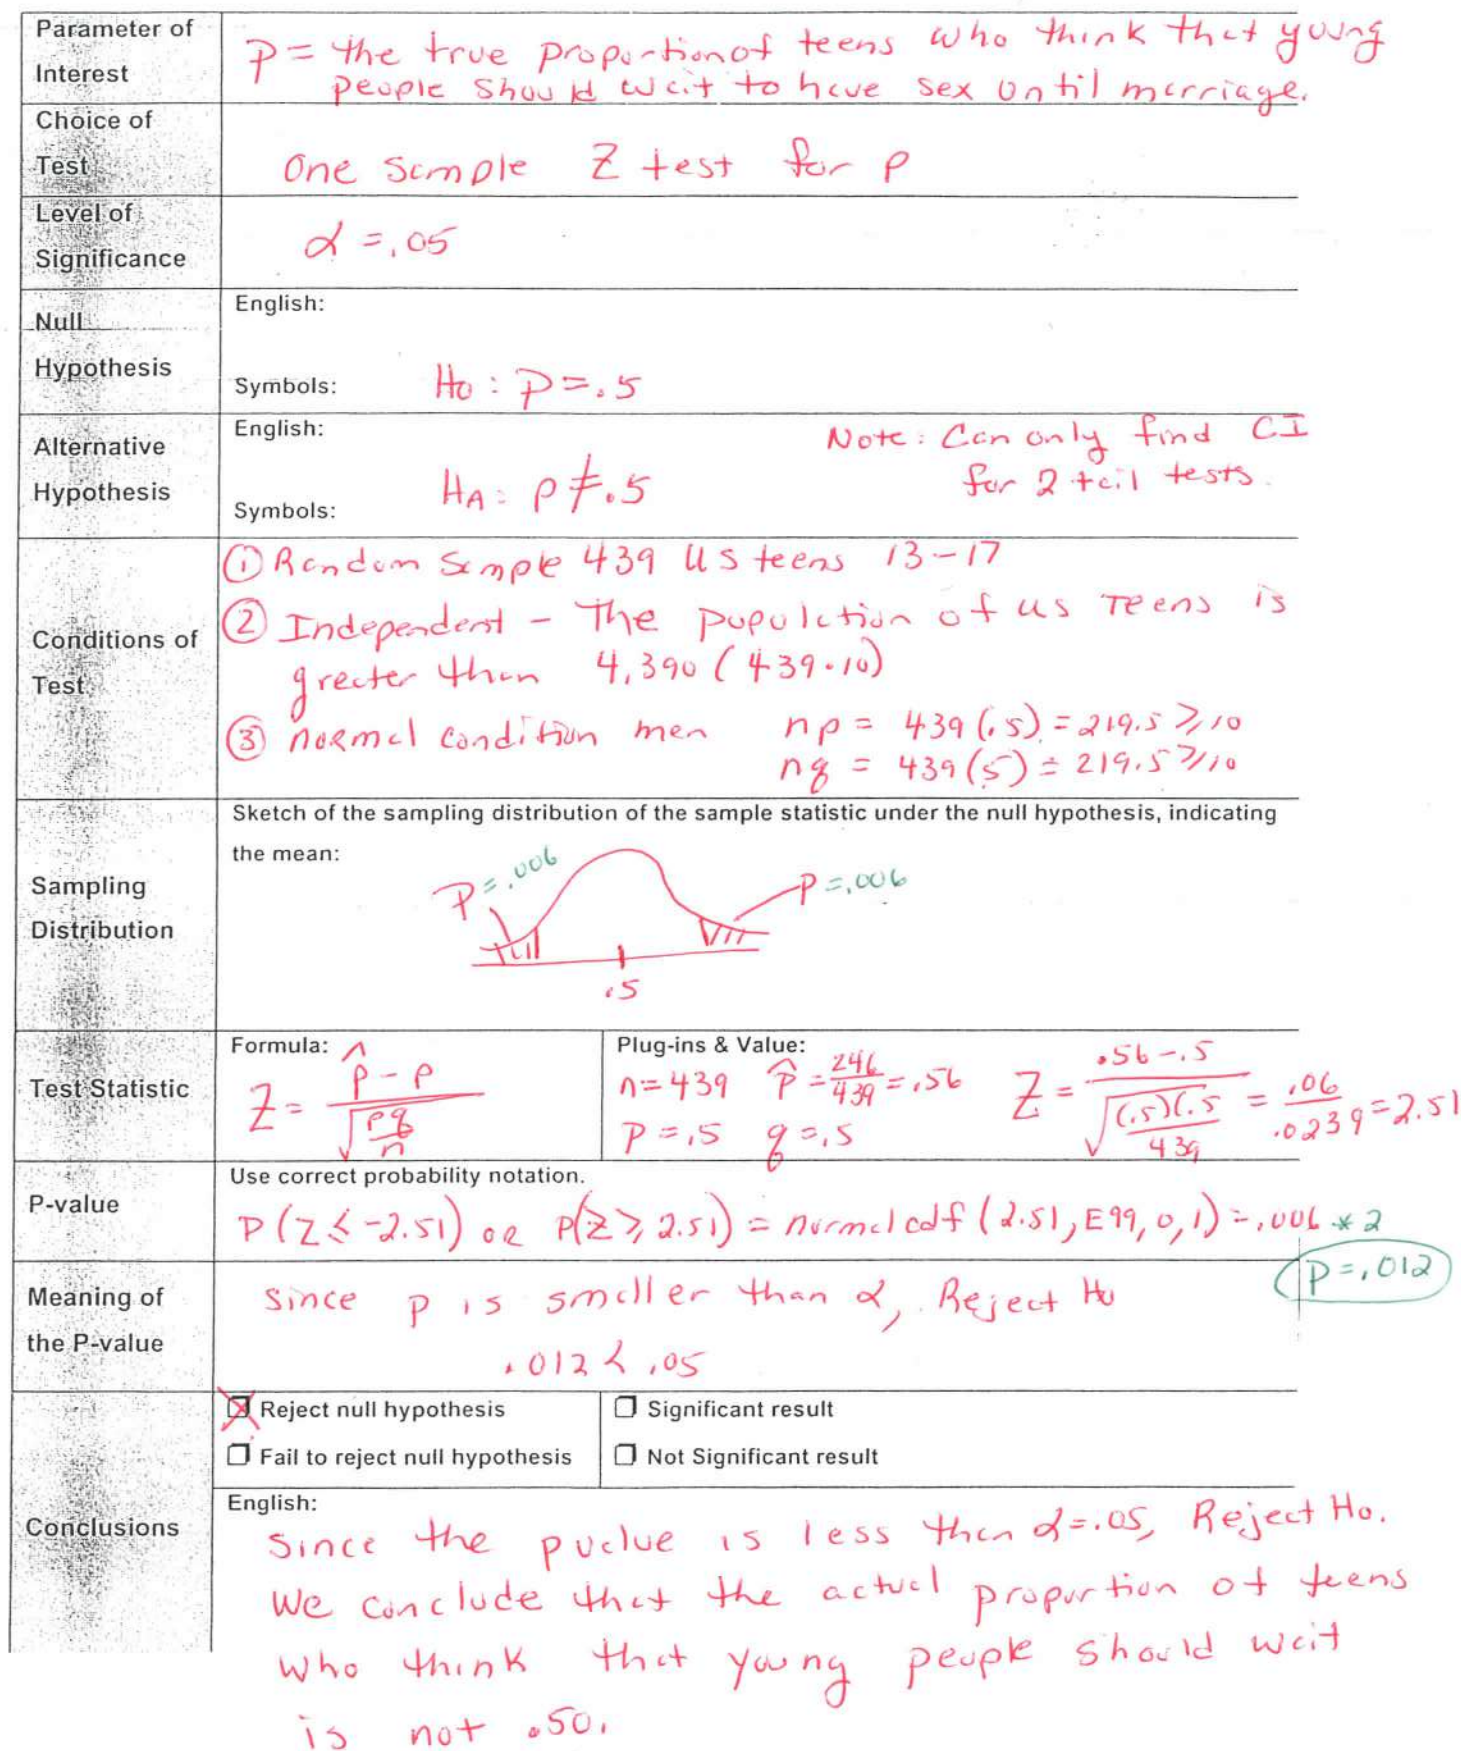 Parameter of
Interest
P = the true proportion of teens who think that young
people should wait to have sex until marriage.
Choice of
Test
One sample Z test for p
Level of
Significance
α = .05
Null
Hypothesis
English:
Symbols: H₀ : P = .5
Alternative
Hypothesis
English:
Symbols: H_A : p ≠ .5
Note: Can only find CI
for 2 tail tests.
Conditions of
Test
① Random Sample 439 US teens 13-17
② Independent - The population of us Teens is
greater than 4,390 (439·10)
③ normal condition men np = 439 (.5) = 219.5 ≥ 10
nq = 439 (5) = 219.5 ≥ 10
Sampling
Distribution
Sketch of the sampling distribution of the sample statistic under the null hypothesis, indicating
the mean:
P = .006
P = .006
.5
Test Statistic
Formula:
Z = (p̂ - p) / √(pq/n)
Plug-ins & Value:
n = 439 p̂ = 246/439 = .56
P = .5 q = .5
Z = (.56 - .5) / √((.5)(.5/439) = .06/.0239 = 2.51
P-value
Use correct probability notation.
P(Z ≤ -2.51) or P(Z ≥ 2.51) = normalcdf (2.51, E99, 0, 1) = .006 * 2
P = .012
Meaning of
the P-value
since p is smaller than α, Reject H₀
.012 < .05
Conclusions
Reject null hypothesis
Fail to reject null hypothesis
Significant result
Not Significant result
English:
Since the pvalue is less than α = .05, Reject H₀.
We conclude that the actual proportion of teens
who think that young people should wait
is not .50.